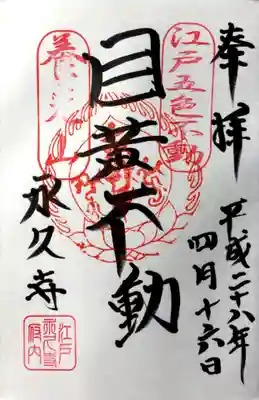 奉拝
平成二十八年
四月十六日
江戸五色不動
目黄不動
永久寺
江戸